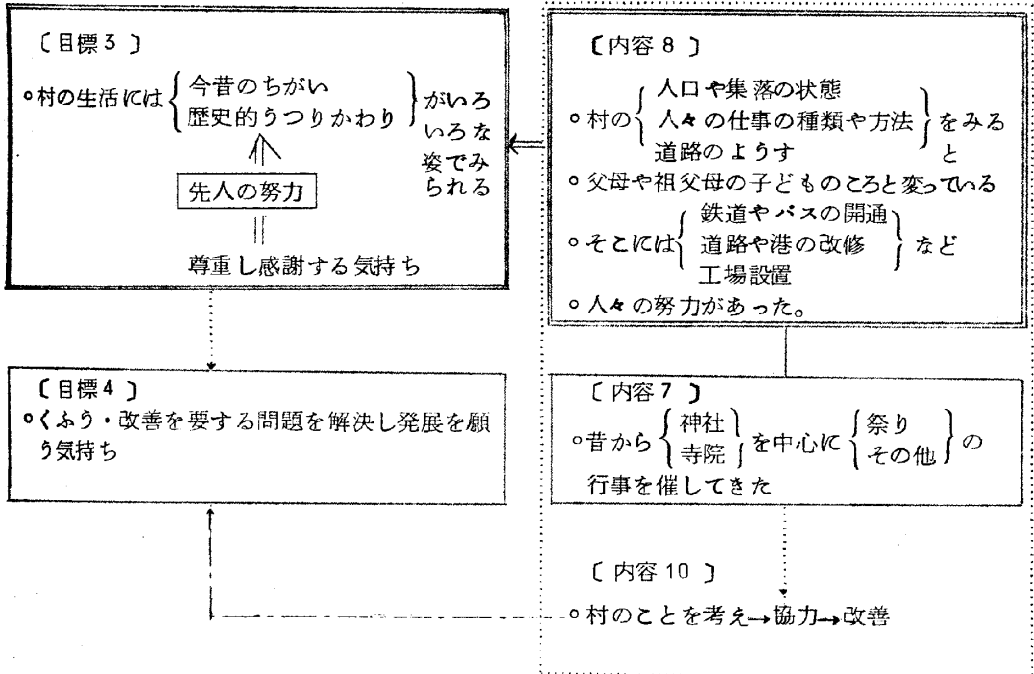 〔目標3〕
○村の生活には{今昔のちがい
歴史的うつりかわり}がいろ
いろな
姿でみ
られる
先人の努力
尊重し感謝する気持ち
〔目標4〕
○くふう・改善を要する問題を解決し発展を願
う気持ち
〔内容8〕
人口や集落の状態
○村の{人々の仕事の種類や方法}をみる
道路のようす と
○父母や祖父母の子どものころと変っている
鉄道やバスの開通
○そこには{道路や港の改修}など
工場設置
○人々の努力があった。
〔内容7〕
○昔から{神社
寺院}を中心に{祭り
その他}の
行事を催してきた
〔内容10〕
○村のことを考え→協力→改善